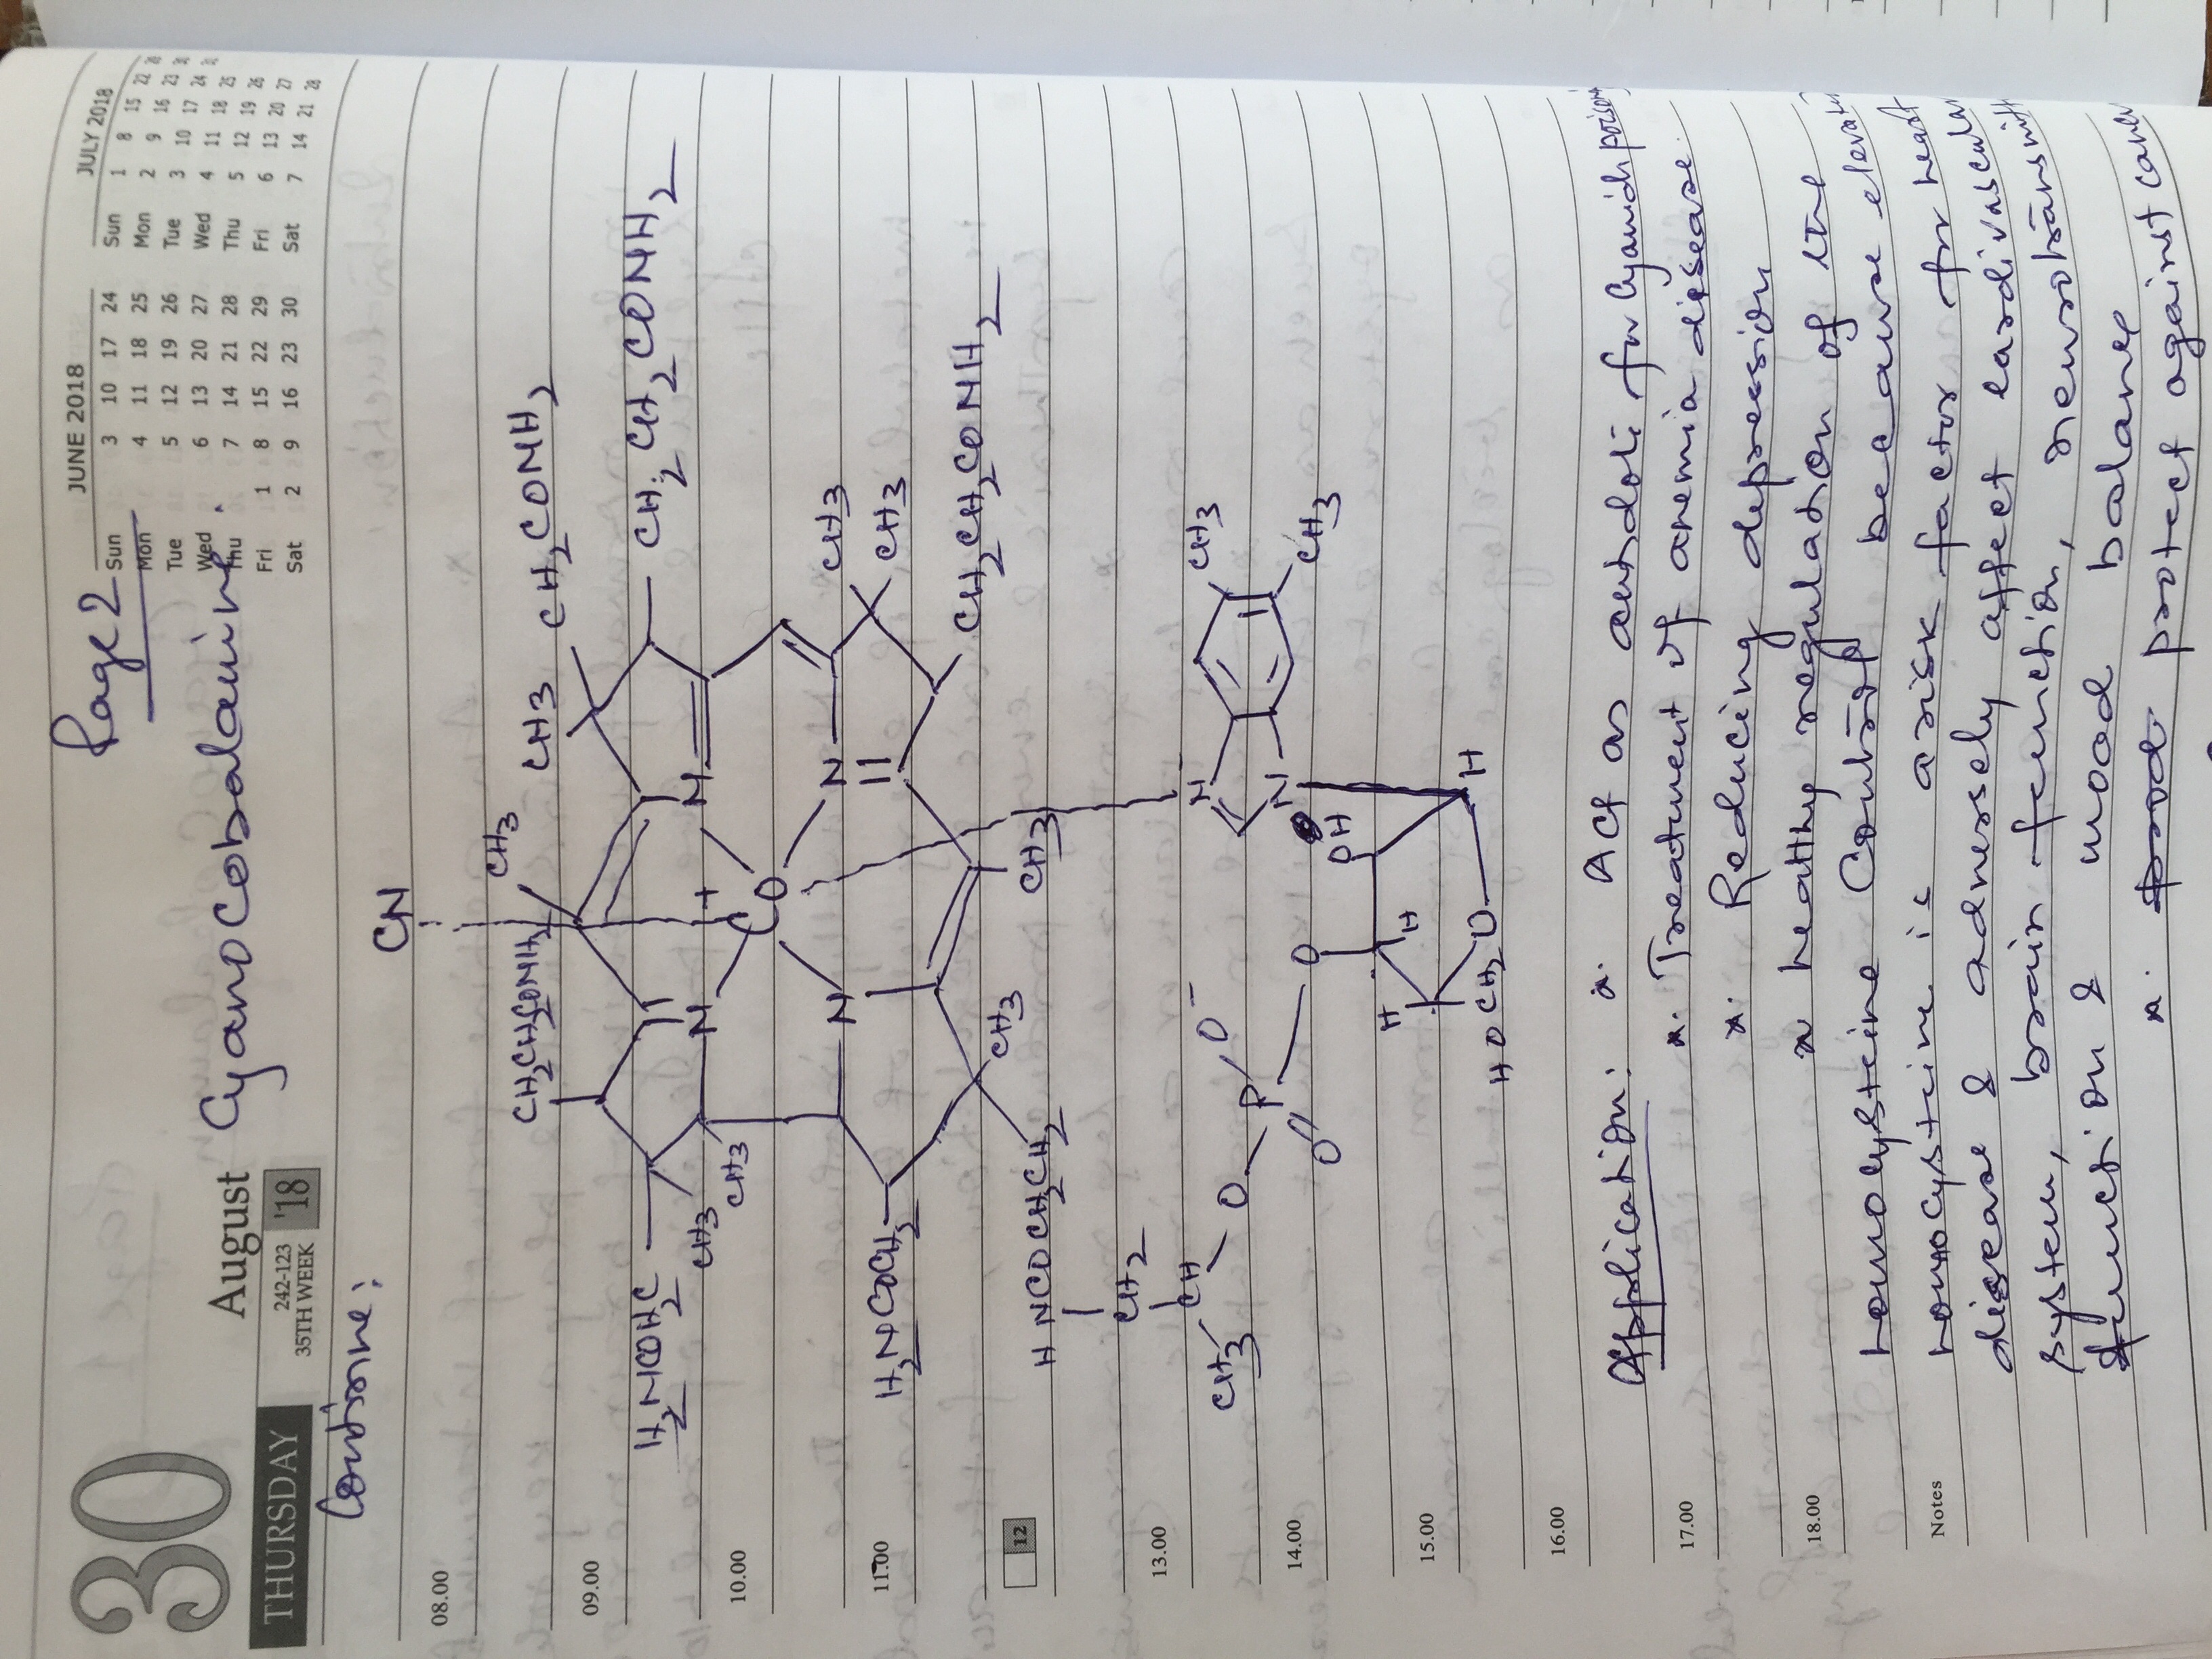 Page 2
30
August
THURSDAY
242-123
35TH WEEK
'18
JUNE 2018
Sun 3 10 17 24
Mon 4 11 18 25
Tue 5 12 19 26
Wed 6 13 20 27
Thu 7 14 21 28
Fri 1 8 15 22 29
Sat 2 9 16 23 30
JULY 2018
Sun 1 8 15 22
Mon 2 9 16 23
Tue 3 10 17 24
Wed 4 11 18 25
Thu 5 12 19 26
Fri 6 13 20 27
Sat 7 14 21 28
Cyanocobalamine.
CN
08.00
CH3
CH3 CH2CONH2
CH2CH2CONH2
09.00
H2NCOH2C
CH2CH2CONH2
CH3
CH3
N N
10.00
+
CO
N N
CH3
CH3
11.00
H2NCOCH2
CH2CH2CONH2
CH3
CH3
12
H NCOCH2CH2
CH2
13.00
CH3 CH
O
P
O-
O
N
N
CH3
CH3
14.00
O
OH
H
H
15.00
HOCH2
O
H
16.00
Application: x. Act as antidoti for Cyanid
17.00
x. Treatment of anemia disease.
x. Reducing depression
18.00
x healthy regulation of the
homolysteine Control because
Notes
homocysteine is a risk factor for heart
disease & adversely affect cardivascular
system, brain function,
function & mood balance
x. protect against